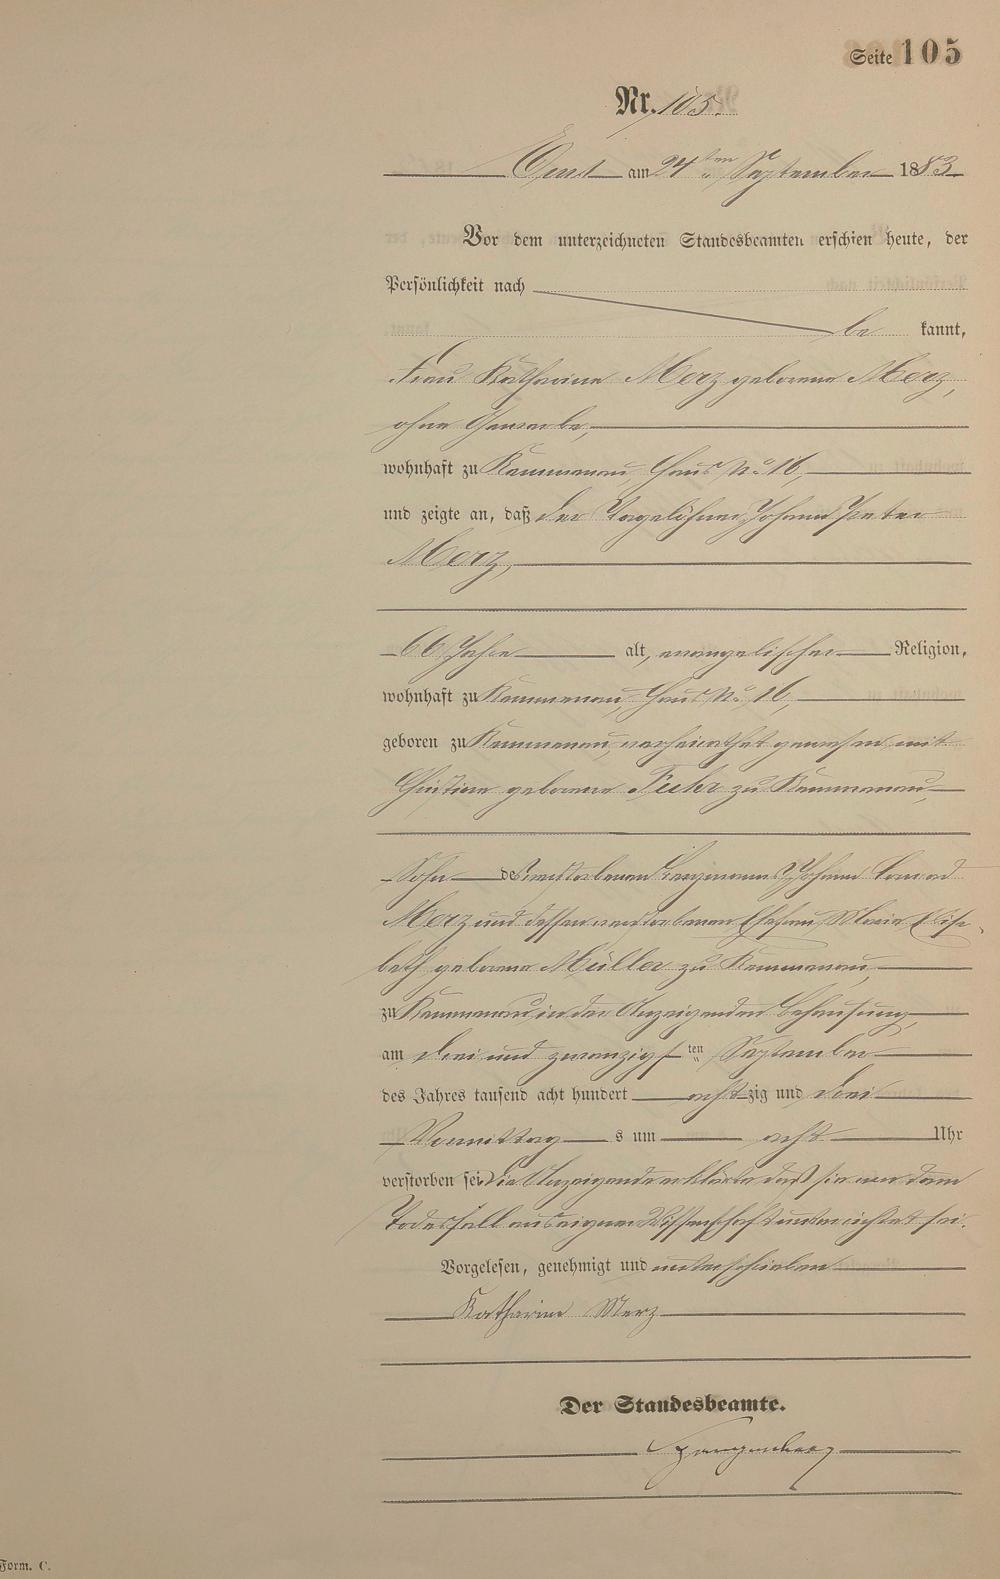 Seite 105
Nr. 105.
Ems am 24ten September 1883.
Vor dem unterzeichneten Standesbeamten erschien heute, der
Persönlichkeit nach
be kannt,
Frau Katharine Merz geborene Merz,
ohne Gewerbe,
wohnhaft zu Kemmenau, Haus No 16,
und zeigte an, daß der Tagelöhner Johann Peter
Merz,
66 Jahre alt, evangelischer Religion,
wohnhaft zu Kemmenau, Haus No 16,
geboren zu Kemmenau, verheirathet gewesen mit
Christine geborene Fuhr zu Kemmenau,
Sohn des verstorbenen Bergmanns Johann Conrad
Merz und dessen verstorbenen Ehefrau Marie Elisa-
beth geborene Müller zu Kemmenau,
zu Kemmenau in der Anzeigenden Behausung,
am drei und zwanzigsten September
des Jahres tausend acht hundert achtzig und drei
Vormittags um acht Uhr
verstorben sei. Die Anzeigende erklärte daß sie von dem
Todesfall aus eigener Wissenschaft unterrichtet sei.
Vorgelesen, genehmigt und unterschrieben
Katharine Merz
Der Standesbeamte.
Spangenberg
Form. C.